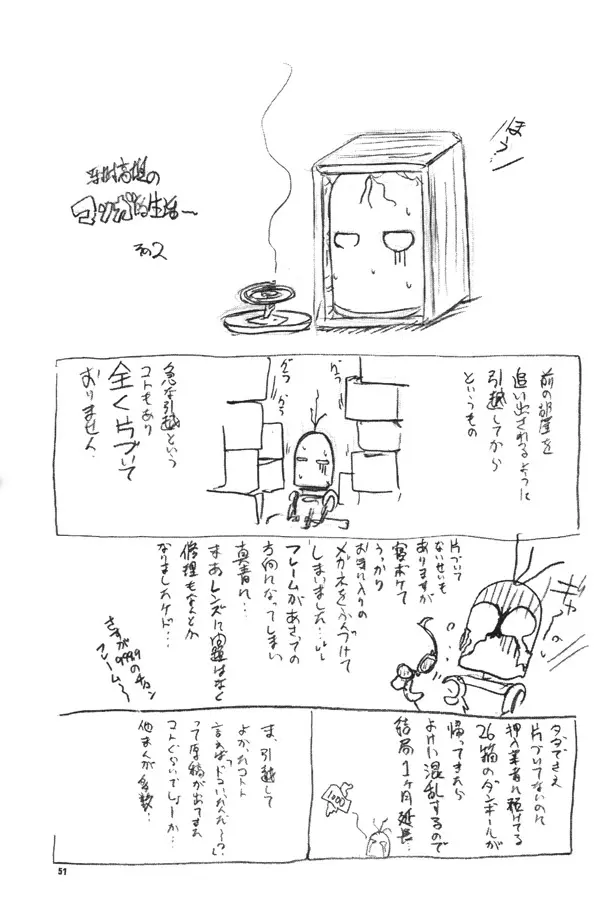 ほうっ
マンガ的生活〜
その2
前の部屋を
追い出されるように
引越してから
というもの
ぐっ
急な引越という
コトもあり
全く片づいて
おりません。
片づいて
ないせいも
ありますが
寝ボケて
うっかり
お気に入りの
メガネをふんづけて
しまいました…
フレームがあさっての
方向になってしまい
真青に…
まあレンズに問題はなく
修理もなんとか
なりましたケド…
さすが
9999の
チタン
フレーム〜
タダでさえ
片づいてないのに
押入業者に預けてる
26箱のダンボールが
帰ってきたら
よけい混乱するので
結局1ヶ月延長…
1000
ま、引越して
よかったコトト
言えば「ドコいったんだ〜!?」
って原稿が出てきた
コトぐらいでしょーか…
他まんが多数…
51